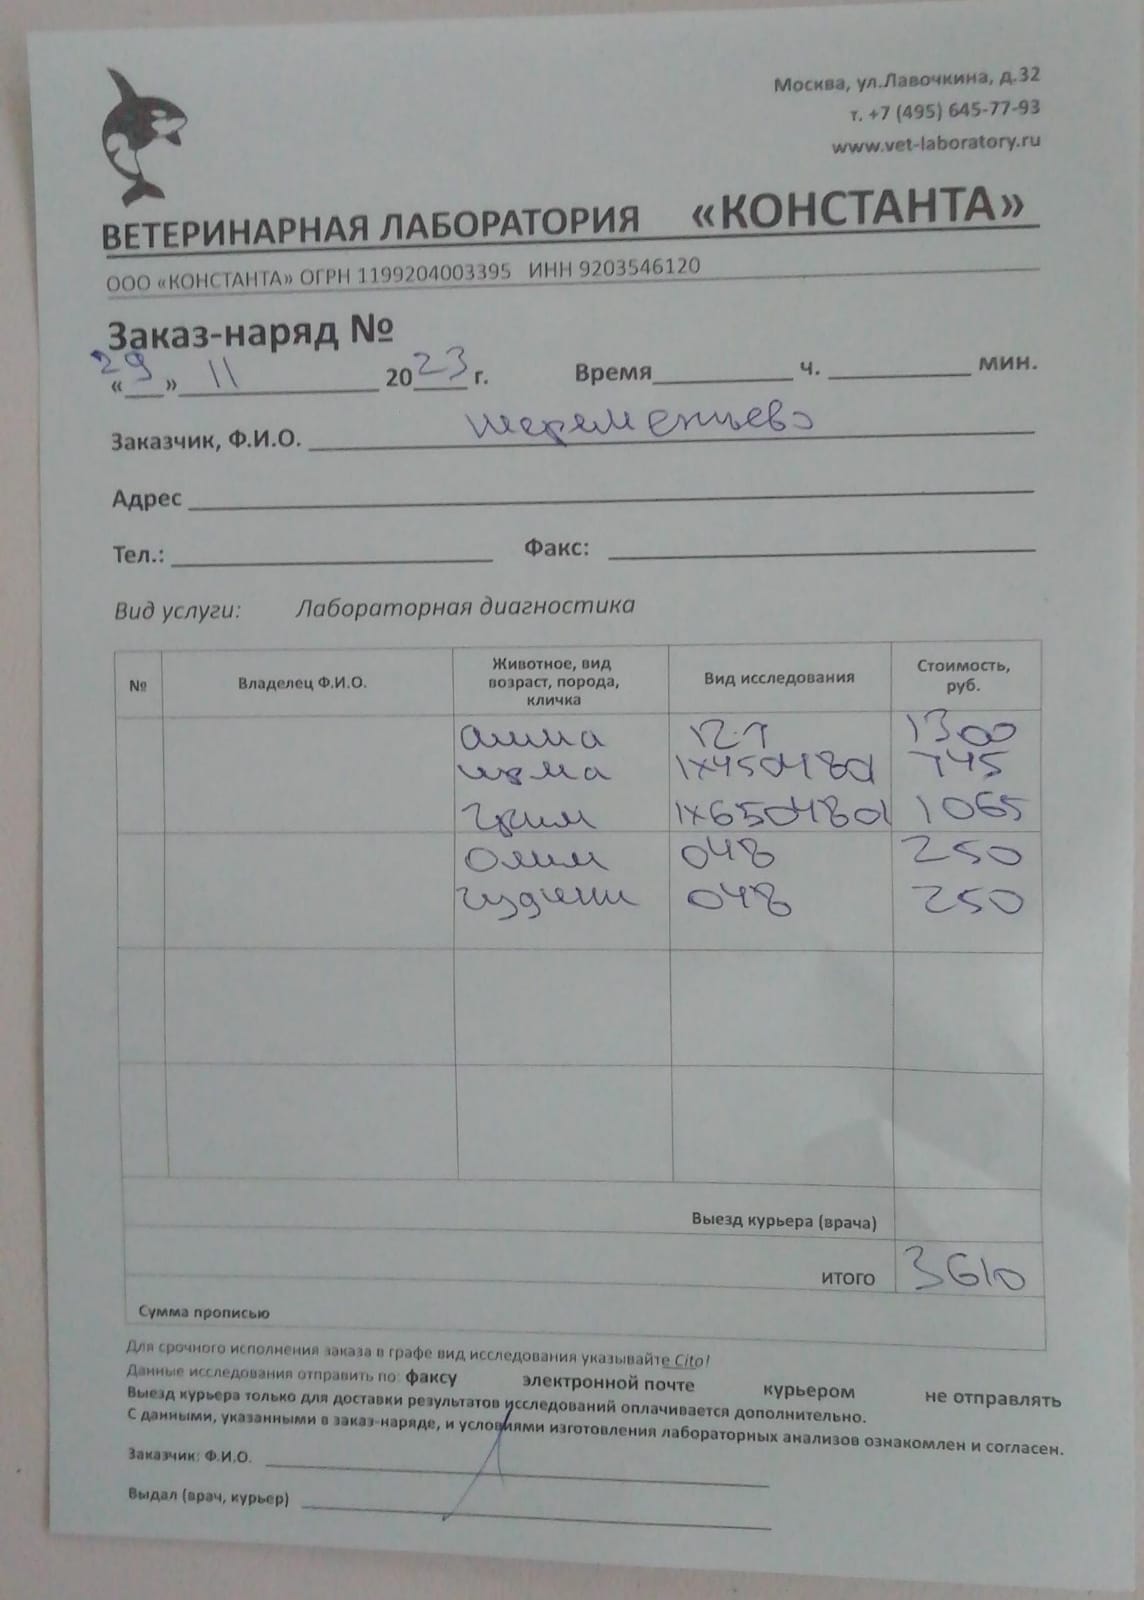 Москва, ул.Лавочкина, д.32
т. +7 (495) 645-77-93
www.vet-laboratory.ru
ВЕТЕРИНАРНАЯ ЛАБОРАТОРИЯ «КОНСТАНТА»
ООО «КОНСТАНТА» ОГРН 1199204003395 ИНН 9203546120
Заказ-наряд №
«29» 11 2023 г. Время ч. мин.
Заказчик, Ф.И.О. Шереметьево
Адрес
Тел.: Факс:
Вид услуги: Лабораторная диагностика
№ Владелец Ф.И.О. Животное, вид возраст, порода, кличка Вид исследования Стоимость, руб.
алиса 12.1 1300
1х45 048 745
грим 1х65 048 1065
олим 048 250
048 250
Выезд курьера (врача)
ИТОГО 3610
Сумма прописью
Для срочного исполнения заказа в графе вид исследования указывайте Cito!
Данные исследования отправить по: факсу электронной почте курьером не отправлять
Выезд курьера только для доставки результатов исследований оплачивается дополнительно.
С данными, указанными в заказ-наряде, и условиями изготовления лабораторных анализов ознакомлен и согласен.
Заказчик: Ф.И.О.
Выдал (врач, курьер)